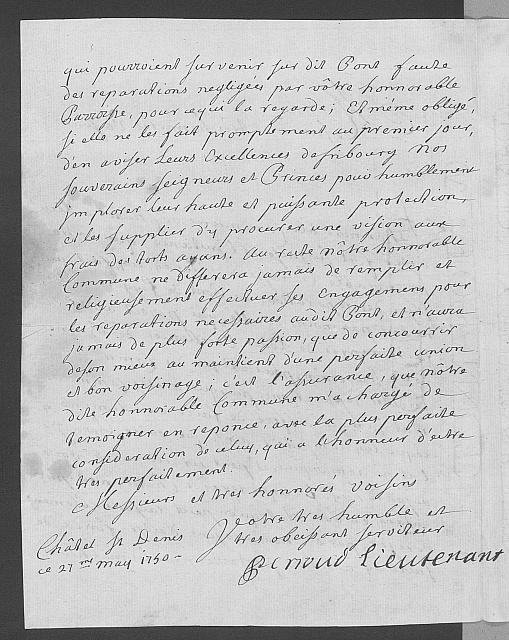 qui pourroient survenir sur dit Pont faute
des reparations negligées par vôtre honnorable
Parroisse, pour ce qui la regarde; Et même obligé,
si elle ne les fait promptement au premier jour,
d'en aviser Leurs Excellences de fribourg Nos
souverains seigneurs et Princes pour humblement
implorer leur haute et puissante protection,
et les supplier d'y procurer une vision aux
frais des torts ayans. Au reste nôtre honnorable
Commune ne differera jamais de remplir et
religieusement effectuer ses Engagemens pour
les reparations necessaires audit Pont, et n'aura
jamais de plus forte passion, que de concourrir
deson mieux au maintient d'une perfaite union
et bon voisinage; c'est l'assurance, que nôtre
dite honnorable Commune m'a chargé de
temoigner en reponce, avec la plus perfaite
consideration de celuy, qui a l'honneur d'estre
tres perfaitement.
Messieurs et tres honnorés voisins
Votre tres humble et
tres obeissant serviteur
Châtel St Denis
ce 27me may 1750 -
Perroud Lieutenant